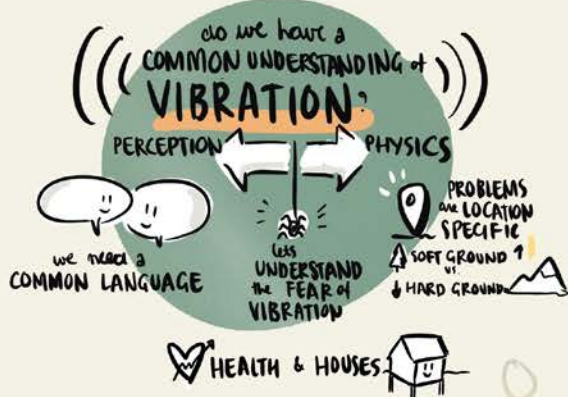 do we have a
COMMON UNDERSTANDING of
VIBRATION?
PERCEPTION
PHYSICS
we need a
COMMON LANGUAGE
lets
UNDERSTAND
the FEAR of
VIBRATION
PROBLEMS
are LOCATION
SPECIFIC
SOFT GROUND
vs.
HARD GROUND
HEALTH & HOUSES